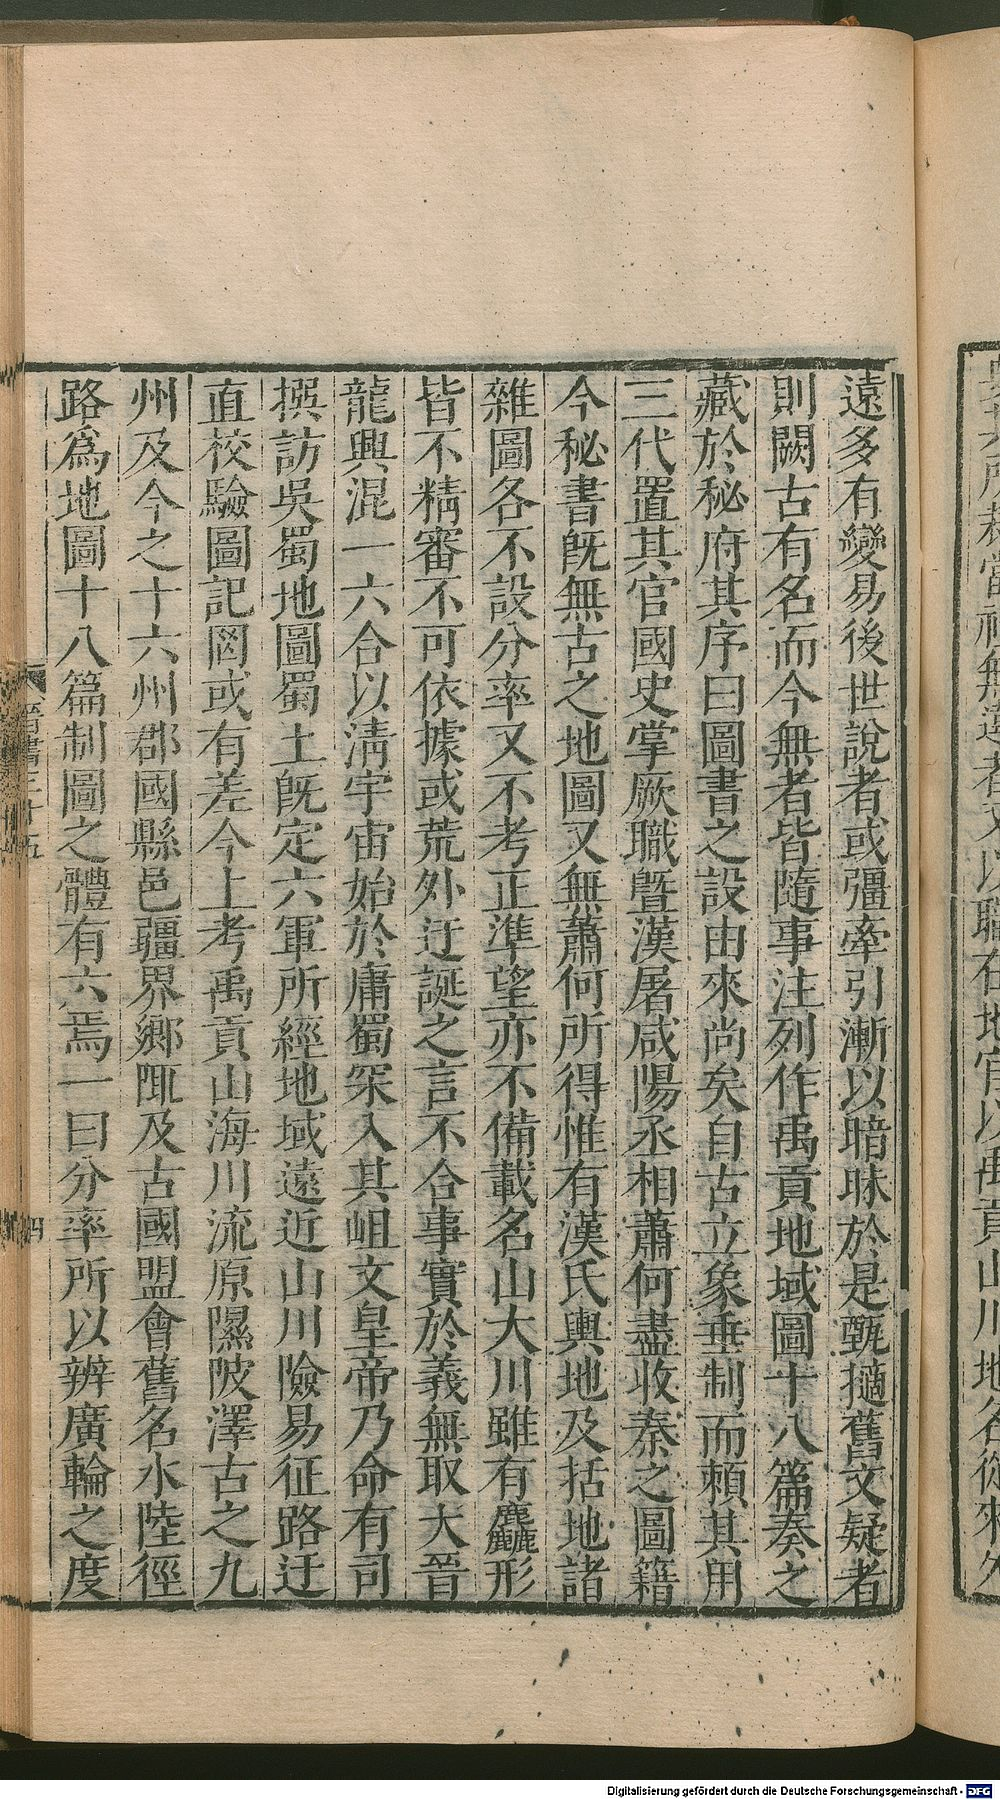 遠多有變易後世說者或彊牽引漸以暗昧於是甄擿舊文疑者
則闕古有名而今無者皆隨事注列作禹貢地域圖十八篇奏之
藏於秘府其序曰圖書之設由來尚矣自古立象垂制而賴其用
三代置其官國史掌厥職曁漢屠咸陽丞相蕭何盡收秦之圖籍
今秘書旣無古之地圖又無蕭何所得惟有漢氏輿地及括地諸
雜圖各不設分率又不考正準望亦不備載名山大川雖有麤形
皆不精審不可依據或荒外迂誕之言不合事實於義無取大晉
龍興混一六合以淸宇宙始於庸蜀罙入其岨文皇帝乃命有司
撰訪吳蜀地圖蜀土旣定六軍所經地域遠近山川險易征路迂
直校驗圖記罔或有差今上考禹貢山海川流原隰陂澤古之九
州及今之十六州郡國縣邑疆界鄉陬及古國盟會舊名水陸徑
路爲地圖十八篇制圖之體有六焉一曰分率所以辨廣輪之度
晉書三十五
四
Digitalisierung gefördert durch die Deutsche Forschungsgemeinschaft - DFG